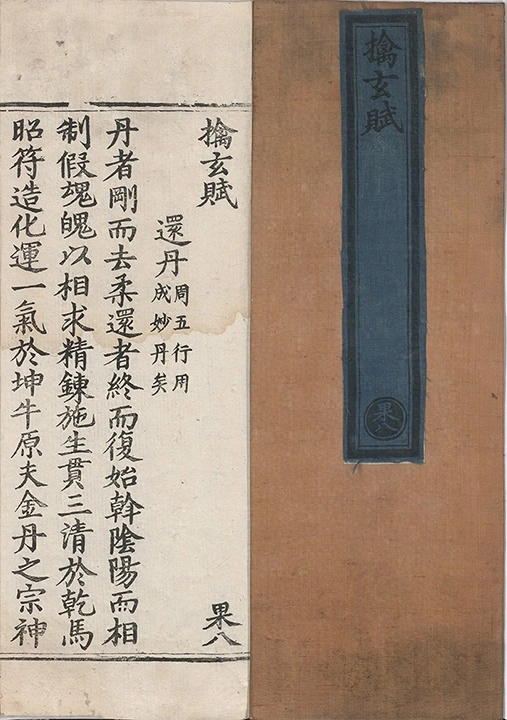 擒玄賦
果八
擒玄賦
果八
還丹周五行用
成妙丹矣
丹者剛而去柔還者終而復始斡陰陽而相
制假魂魄以相求精鍊施生貫三清於乾馬
昭符造化運一氣於坤牛原夫金丹之宗神